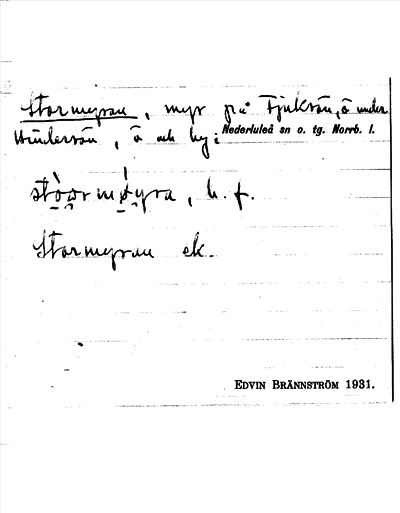 Stormyran, myr på Fjuksön, ö under
Hindersön, ö och by i Nederluleå sn o. tg. Norrb. l.
stòₒormǿyra, b. f.
Stormyran ek.
EDVIN BRÄNNSTRÖM 1931.